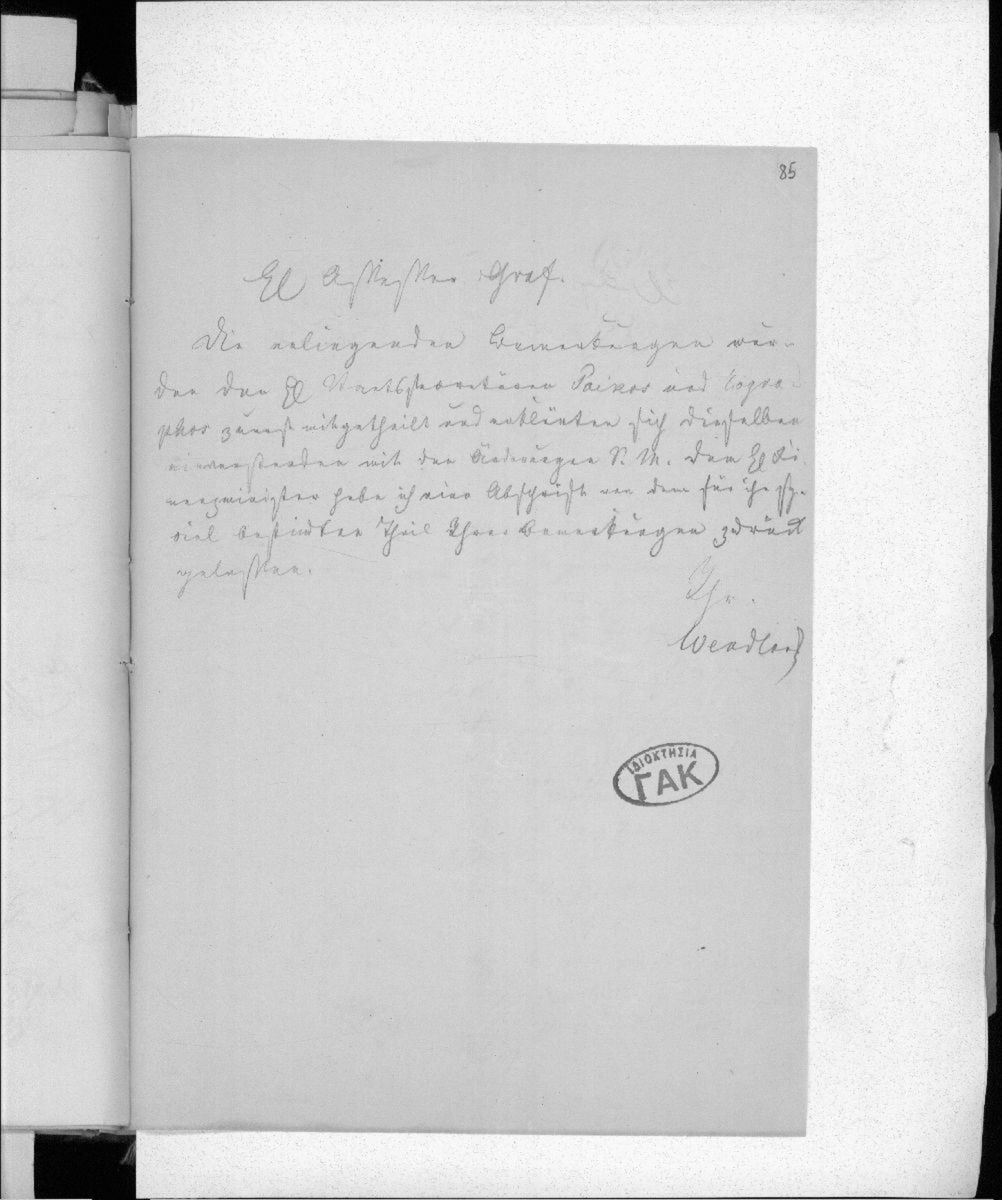 85
H Assessor Graf.
Die anliegenden Bemerkungen wur-
den den H Staatssecretären Paikos und Zogra-
phos zuerst mitgetheilt und erklärten sich dieselben
einverstanden mit den Änderungen S. M. Dem H Fi-
nanzminister habe ich eine Abschrift von dem für ihn spe-
ciel bestimten Theil Ihrer Bemerkungen zurück
gelassen.
Ihr.
Wendland
ΙΔΙΟΚΤΗΣΙΑ
ΓΑΚ